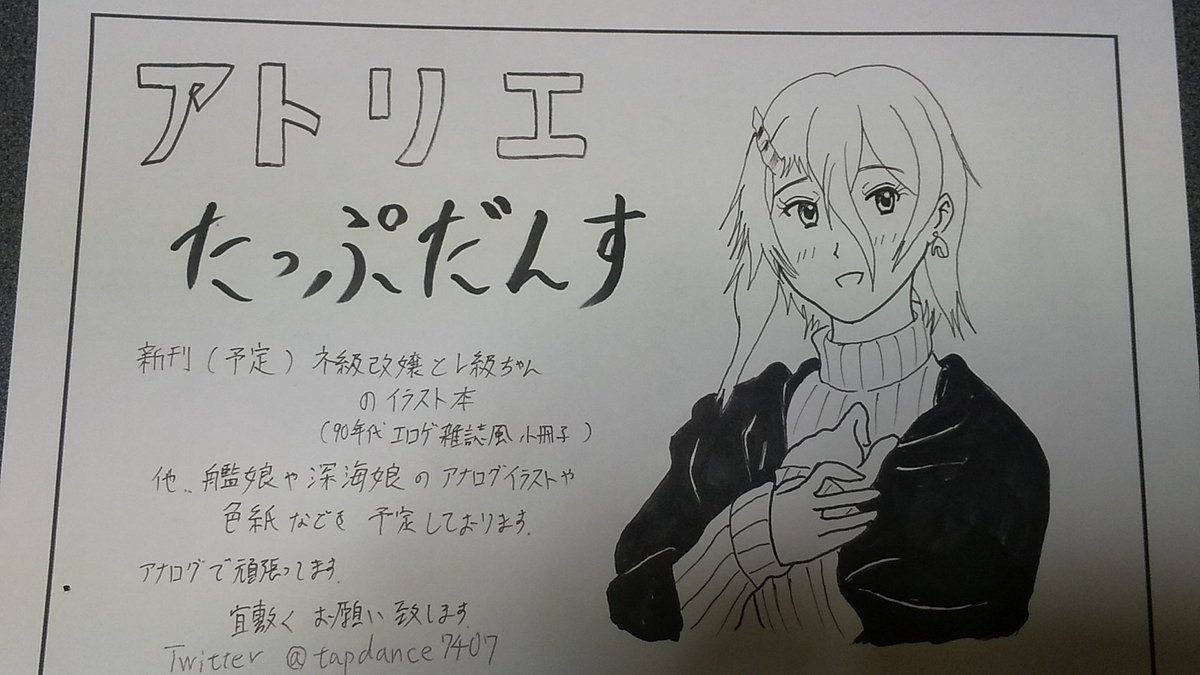 アトリエ
たっぷだんす
新刊(予定)ネ級改嬢とレ級ちゃん
のイラスト本
(90年代エロゲ雑誌風小冊子)
他、艦娘や深海娘のアナログイラストや
色紙などを予定しております.
アナログで頑張ってます.
宜敷くお願い致します.
Twitter @tapdance7407